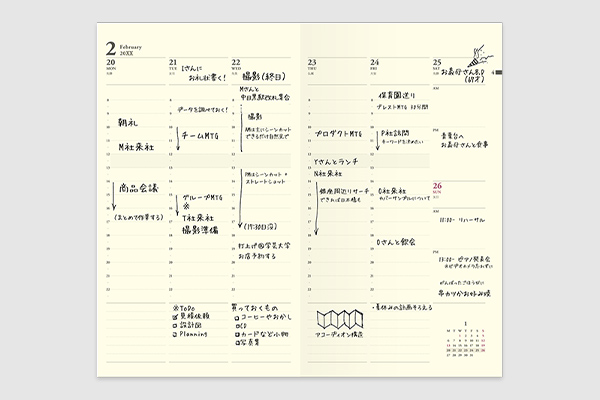 2 February
20XX
20
MON
21
TUE
Iさんに
お礼状書く!
22
WED
撮影(終日)
朝礼
M社来社
商品会議
(まとめて作業する)
データを調べておく!
チームMTG
グループMTG
※
T社来社
撮影準備
Mさんと
中目黒駅改札集合
撮影
AMは主にシーンカット
できるだけ自然光で
PMはシーンカット+
ストレートショット
(17:30日没)
打上げ@学芸大学
お店予約する
※ToDo
見積依頼
設計図
Planning
買っておくもの
コーヒーやおかし
CD
カードなど小物
写真集
23
THU
24
FRI
25
SAT
お義母さんB.D
プロダクトMTG
Yさんとランチ
N社来社
銀座周辺リサーチ
できれば日本橋も
保育園送り
ブレストMTG 12分間
P社訪問
キーワードを決めたい
O社来社
カバーサンプルについて
Oさんと飲会
青葉台の
お義母さんと食事
26
SUN
リハーサル
ピアノ発表会
※ビデオカメラ忘れずに
がんばったごほうびに
串カツかお好み焼
アコーディオン構造
・夏休みの計画そろえる
1
M T W T F S S